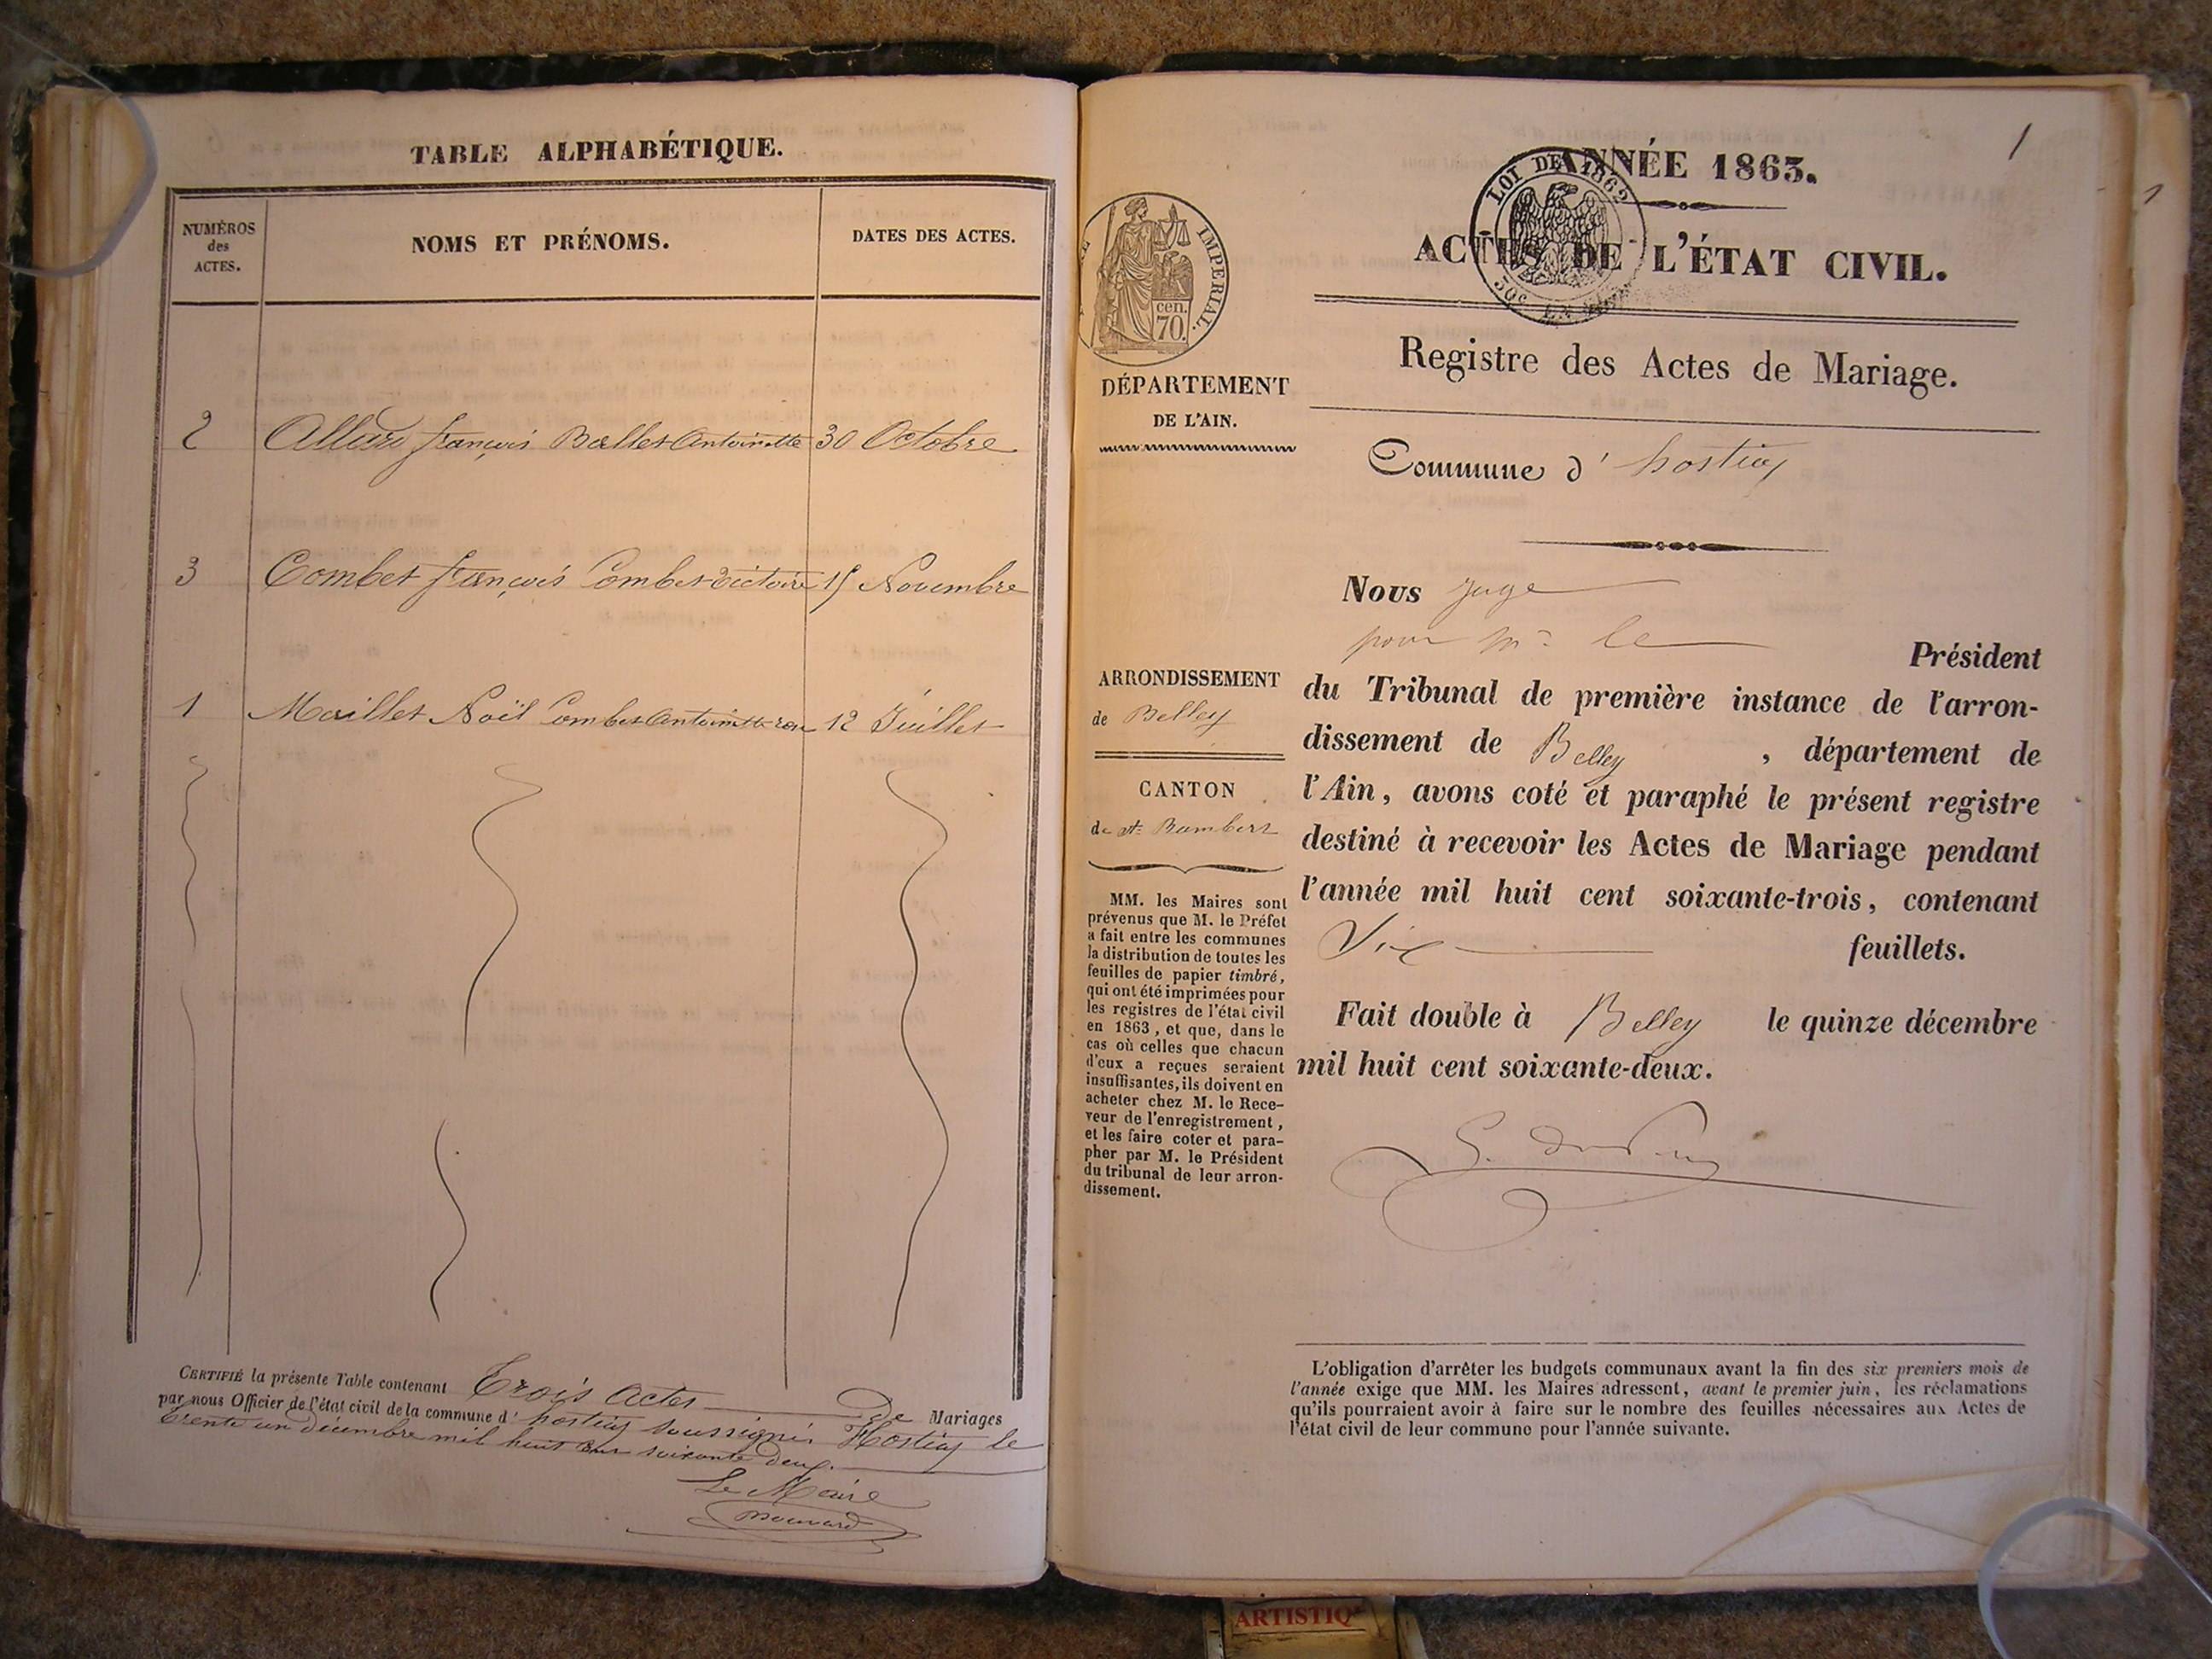 TABLE ALPHABÉTIQUE.
NUMÉROS
des
ACTES.
NOMS ET PRÉNOMS.
DATES DES ACTES.
2 Allard françois Ballet Antoinette 30 Octobre
3 Combet françois Combet Victoire 15 Novembre
1 Maillet Noël Combet Antoinette rose 12 Juillet
CERTIFIÉ la présente Table contenant Trois Actes de Mariages
par nous Officier de l'état civil de la commune d' hostiaz soussigné. Hostiaz le
trente un décembre mil huit cent soixante deux.
Le Maire
1
ANNÉE 1863.
LOI DE 1862
ACTES DE L'ÉTAT CIVIL.
IMPERIAL.
cen.
70.
Registre des Actes de Mariage.
DÉPARTEMENT
DE L'AIN.
Commune d' hostiaz
ARRONDISSEMENT
de Belley
CANTON
de St Rambert
MM. les Maires sont
prévenus que M. le Préfet
a fait entre les communes
la distribution de toutes les
feuilles de papier timbré,
qui ont été imprimées pour
les registres de l'état civil
en 1863, et que, dans le
cas où celles que chacun
d'eux a reçues seraient
insuffisantes, ils doivent en
acheter chez M. le Rece-
veur de l'enregistrement,
et les faire coter et para-
pher par M. le Président
du tribunal de leur arron-
dissement.
Nous juge
pour Mr le Président
du Tribunal de première instance de l'arron-
dissement de Belley , département de
l'Ain, avons coté et paraphé le présent registre
destiné à recevoir les Actes de Mariage pendant
l'année mil huit cent soixante-trois, contenant
Six feuillets.
Fait double à Belley le quinze décembre
mil huit cent soixante-deux.
L'obligation d'arrêter les budgets communaux avant la fin des six premiers mois de
l'année exige que MM. les Maires adressent, avant le premier juin, les réclamations
qu'ils pourraient avoir à faire sur le nombre des feuilles nécessaires aux Actes de
l'état civil de leur commune pour l'année suivante.
ARTISTIQ